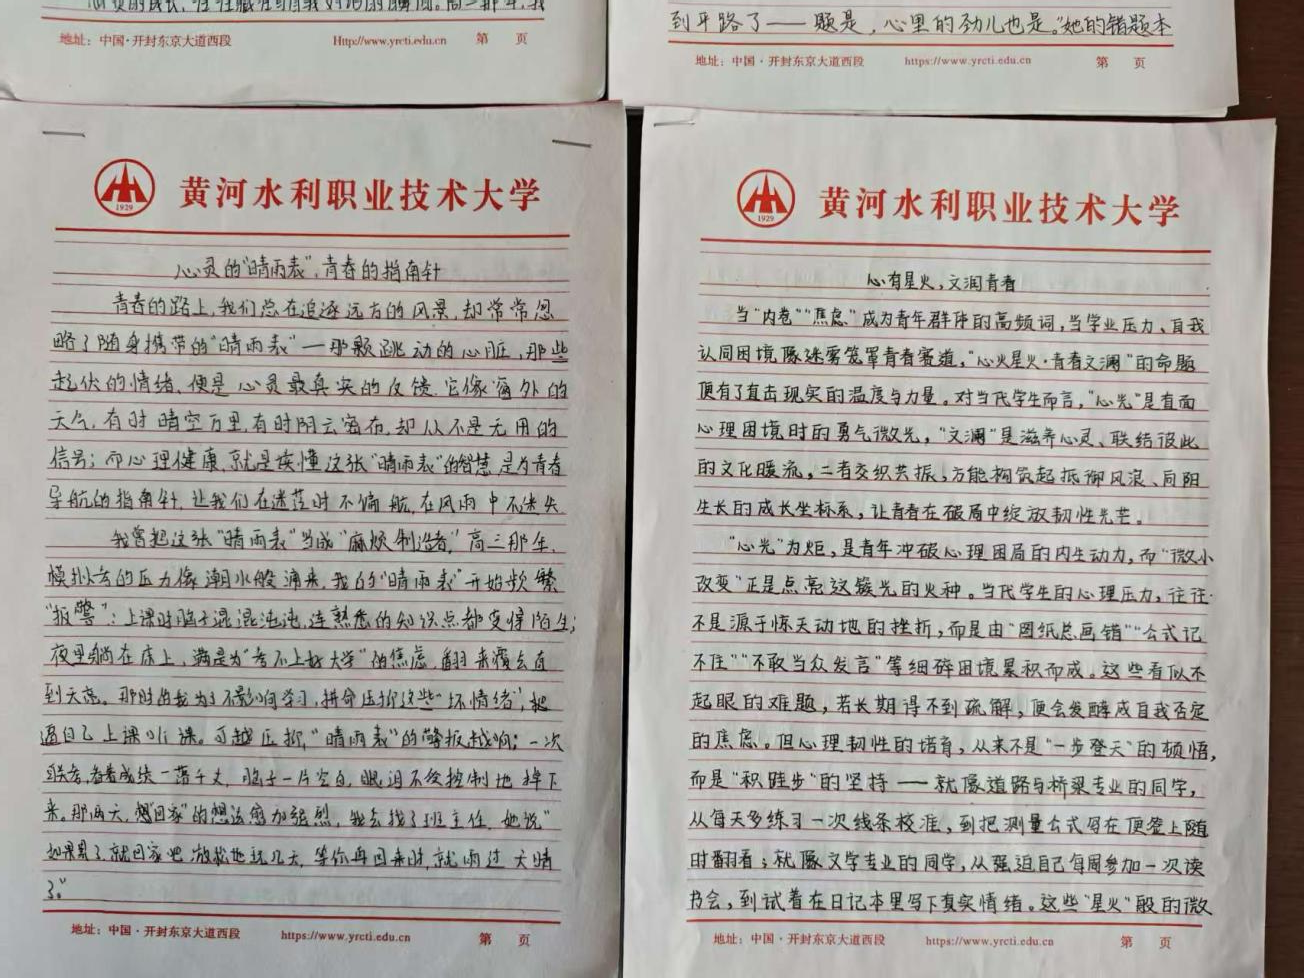 地址：中国·开封东京大道西段 Http://www.yrcti.edu.cn 第 页
到平路了——题是，心里的劲儿也是。"她的错题本
地址：中国·开封东京大道西段 https://www.yrcti.edu.cn 第 页
1929
黄河水利职业技术大学
心灵的"晴雨表"，青春的指南针
青春的路上，我们总在追逐远方的风景，却常常忽
略了随身携带的"晴雨表"—那颗跳动的心脏，那些
起伏的情绪，便是心灵最真实的反馈。它像窗外的
天气，有时晴空万里，有时阴云密布，却从不是无用的
信号；而心理健康，就是读懂这张"晴雨表"的智慧，是为青春
导航的指南针，让我们在迷茫时不偏航，在风雨中不迷失
我曾把这张"晴雨表"当成"麻烦制造者，"高三那年，
模拟考的压力像潮水般涌来，我的"晴雨表"开始频繁
"报警"：上课时脑子混混沌沌，连熟悉的知识点都变得陌生；
夜里躺在床上，满是为"考不上好大学"的焦虑，翻来覆去直
到天亮。那时的我为了不影响学习，拼命压抑这些"坏情绪"，把
逼自己上课听课。可越压抑，"晴雨表"的警报越响；一次
联考，看着成绩一落千丈，脑子一片空白，眼泪不受控制地掉下
来。那两天，想"回家"的想法愈加强烈，我去找了班主任，她说"
如果累了就回家吧，放松地玩几天，等你再回来时，就雨过天晴
了。"
地址：中国·开封东京大道西段 https://www.yrcti.edu.cn 第 页
1929
黄河水利职业技术大学
心有星火，文润青春
当"内卷""焦虑"成为青年群体的高频词，当学业压力、自我
认同困境像迷雾笼罩青春赛道，"心火星火·青春文澜"的命题
便有了直击现实的温度与力量。对当代学生而言，"心光"是直面
心理困境时的勇气微光，"文澜"是滋养心灵、联结彼此
的文化暖流，二者交织共振，方能构筑起抵御风浪、向阳
生长的成长坐标系，让青春在破局中绽放韧性光芒。
"心光"为炬，是青年冲破心理困局的内生动力，而"微小
改变"正是点亮这簇光的火种。当代学生的心理压力，往往
不是源于惊天动地的挫折，而是由"图纸总画错""公式记
不住""不敢当众发言"等细碎困境累积而成。这些看似不
起眼的难题，若长期得不到疏解，便会发酵成自我否定
的焦虑。但心理韧性的培育，从来不是"一步登天"的顿悟，
而是"积跬步"的坚持——就像道路与桥梁专业的同学，
从每天多练习一次线条校准，到把测量公式写在便签上随
时翻看；就像文学专业的同学，从强迫自己每周参加一次读
书会，到试着在日记本里写下真实情绪。这些"星火"般的微
地址：中国·开封东京大道西段 https://www.yrcti.edu.cn 第 页